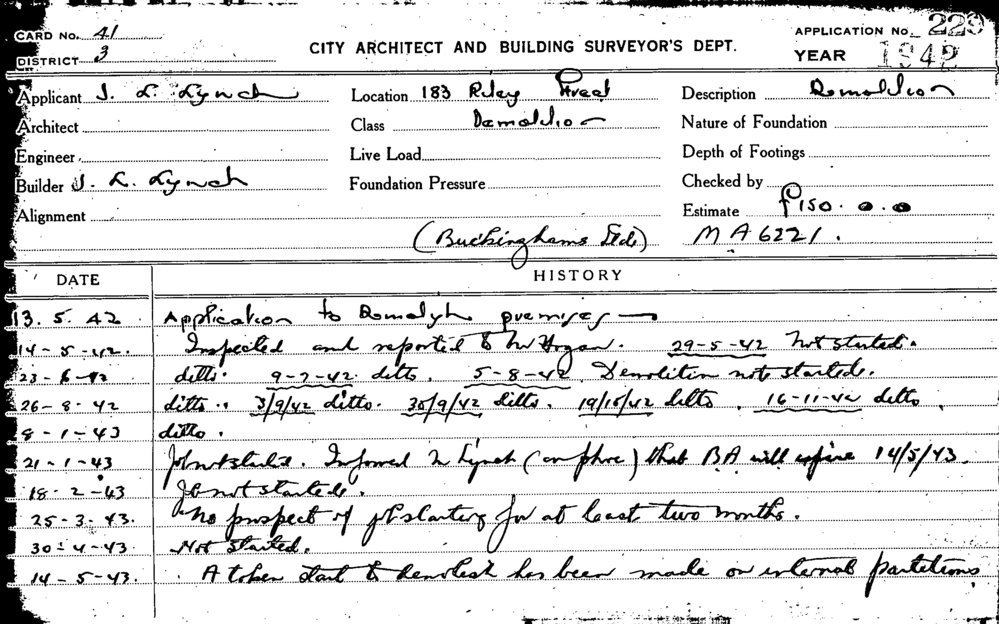 CARD No. 41
DISTRICT 3
CITY ARCHITECT AND BUILDING SURVEYOR'S DEPT.
APPLICATION No. 229
YEAR 1942
Applicant J. L. Lynch
Location 183 Riley Street
Description Demolition
Architect
Class Demolition
Nature of Foundation
Engineer
Live Load
Depth of Footings
Builder J. L. Lynch
Foundation Pressure
Checked by
Alignment
Estimate £150.0.0
(Buckinghams Ltd) MA6221.
DATE HISTORY
13.5.42 Application to Demolish premises
14-5-42. Inspected and reported to Mr Hogan. 29-5-42 Not started.
23-6-42 ditto. 9-7-42 ditto. 5-8-42. Demolition not started.
26-8-42 ditto. 3/9/42 ditto. 30/9/42 ditto. 19/10/42 ditto. 16-11-42 ditto.
8-1-43 ditto.
21-1-43 Job not started. Informed Mr Lynch (on phone) that BA will expire 14/5/43.
18-2-43 Job not started.
25-3-43. No prospect of job starting for at least two months.
30-4-43. Not started.
14-5-43. A token start to demolish has been made on internal partitions